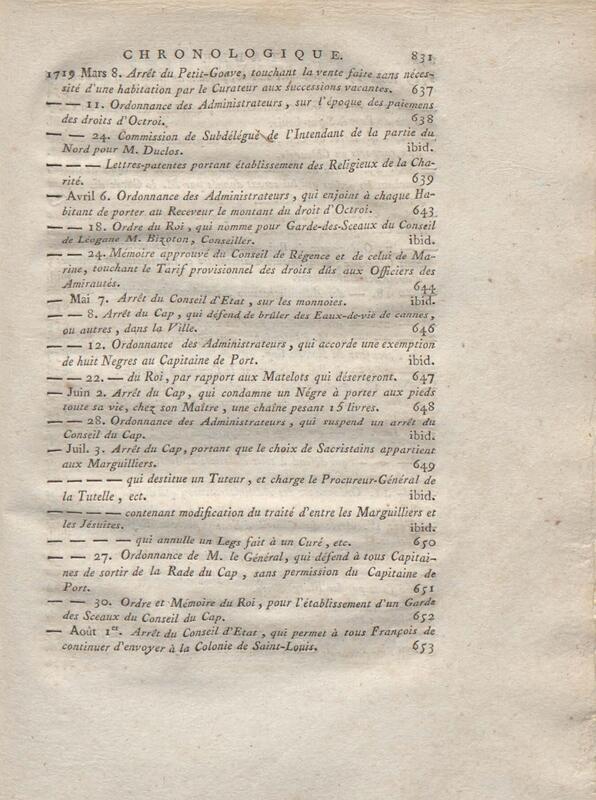 CHRONOLOGIQUE. 831
1719 Mars 8. Arrêt du Petit-Goave, touchant la vente faite sans néces-
sité d'une habitation par le Curateur aux successions vacantes. 637
— — 11. Ordonnance des Administrateurs, sur l'époque des paiemens
des droits d'Octroi. 638
— — 24. Commission de Subdélégué de l'Intendant de la partie du
Nord pour M. Duclos. ibid.
— — — Lettres-patentes portant établissement des Religieux de la Cha-
rité. 639
— Avril 6. Ordonnance des Administrateurs, qui enjoint à chaque Ha-
bitant de porter au Receveur le montant du droit d'Octroi. 643
— — 18. Ordre du Roi, qui nomme pour Garde-des-Sceaux du Conseil
de Léogane M. Bizoton, Conseiller. ibid.
— — 24. Mémoire approuvé du Conseil de Régence et de celui de Ma-
rine, touchant le Tarif provisionnel des droits dûs aux Officiers des
Amirautés. 644
— Mai 7. Arrêt du Conseil d'Etat, sur les monnoies. ibid.
— — 8. Arrêt du Cap, qui défend de brûler des Eaux-de-vie de cannes,
ou autres, dans la Ville. 646
— — 12. Ordonnance des Administrateurs, qui accorde une exemption
de huit Negres au Capitaine de Port. ibid.
— — 22. — du Roi, par rapport aux Matelots qui déserteront. 647
— Juin 2. Arrêt du Cap, qui condamne un Négre à porter aux pieds
toute sa vie, chez son Maître, une chaîne pesant 15 livres. 648
— — 28. Ordonnance des Administrateurs, qui suspend un arrêt du
Conseil du Cap. ibid.
— Juil. 3. Arrêt du Cap, portant que le choix de Sacristains appartient
aux Marguilliers. 649
— — — — qui destitue un Tuteur, et charge le Procureur-Général de
la Tutelle, ect. ibid.
— — — — contenant modification du traité d'entre les Marguilliers et
les Jésuites. ibid.
— — — — qui annulle un Legs fait à un Curé, etc. 650
— — 27. Ordonnance de M. le Général, qui défend à tous Capitai-
nes de sortir de la Rade du Cap, sans permission du Capitaine de
Port. 651
— — 30. Ordre et Mémoire du Roi, pour l'établissement d'un Garde
des Sceaux du Conseil du Cap. 652
— Août 1er. Arrêt du Conseil d'Etat, qui permet à tous François de
continuer d'envoyer à la Colonie de Saint-Louis. 653